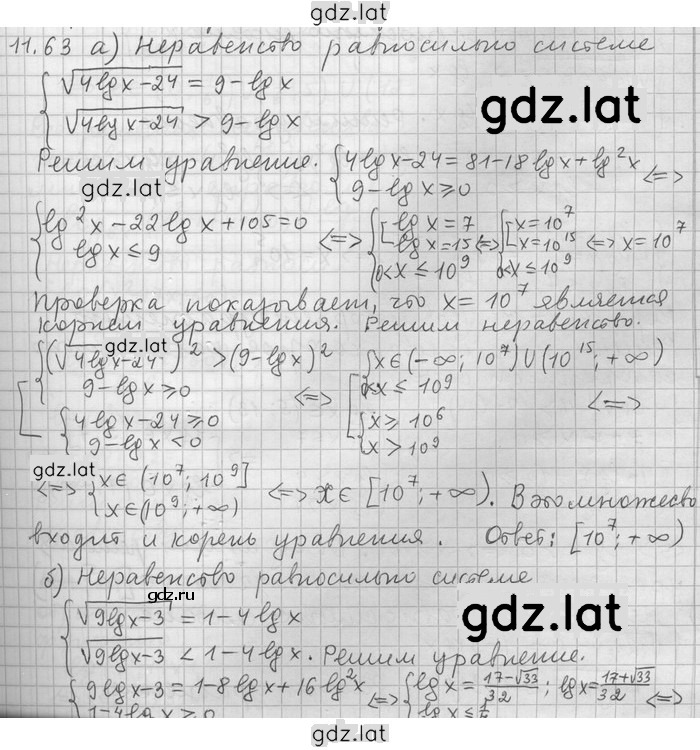 gdz.lat
11.63 а) Неравенство равносильно системе
{ √(4lgx−24) = 9−lgx
{ √(4lgx−24) > 9−lgx
gdz.lat
Решим уравнение. { 4lgx−24=81−18lgx+lg²x
{ 9−lgx≥0 <=>
gdz.lat
{ lg²x−22lgx+105=0
{ lgx≤9 <=> { [ lgx=7 lgx=15 0<x≤10⁹ <=> { [ x=10⁷ x=10¹⁵ 0<x≤10⁹ <=> x=10⁷
Проверка показывает, что x=10⁷ является
корнем уравнения. Решим неравенство.
gdz.lat
[ { (√(4lgx−24))²>(9−lgx)²
9−lgx≥0
{ 4lgx−24≥0
9−lgx<0
<=> [ { x∈(−∞; 10⁷)∪(10¹⁵; +∞)
0<x≤10⁹
{ x≥10⁶
x>10⁹ <=>
gdz.lat
<=> { x∈(10⁷; 10⁹]
x∈(10⁹; +∞) <=> x∈[10⁷; +∞). В это множество
входит и корень уравнения. Ответ: [10⁷; +∞)
б) Неравенство равносильно системе
gdz.lat
{ √(9lgx−3) = 1−4lgx
{ √(9lgx−3) < 1−4lgx. Решим уравнение.
gdz.lat
{ 9lgx−3=1−8lgx+16lg²x
1−4lgx≥0 <=> { lgx=(17−√33)/32; lgx=(17+√33)/32 <=>
lgx≤1/4
gdz.lat